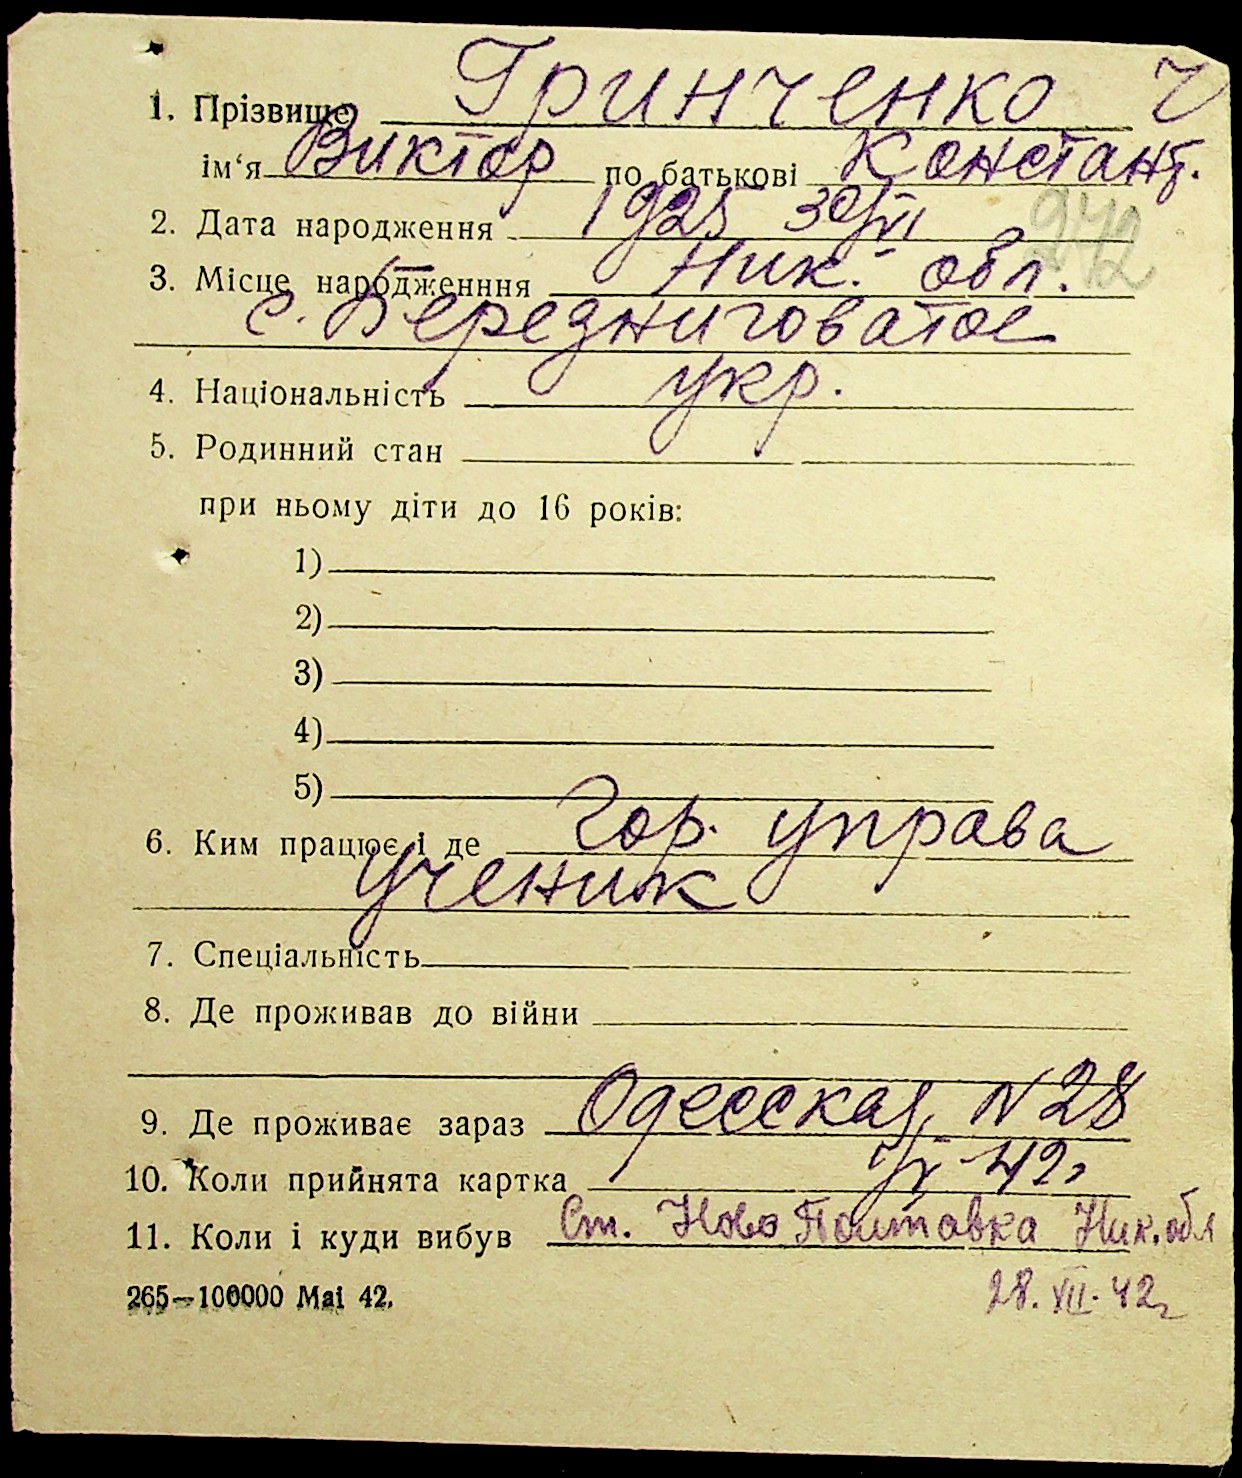 1. Прізвище Гринченко
ім'я Виктор по батькові Констант.
2. Дата народження 1925 30/VI
242
3. Місце народженння Ник. обл.
с. Березниговатое
4. Національність укр.
5. Родинний стан
при ньому діти до 16 років:
1)
2)
3)
4)
5)
6. Ким працює і де Гор. управа
ученик
7. Спеціальність
8. Де проживав до війни
9. Де проживає зараз Одесская, N 28
10. Коли прийнята картка 42
11. Коли і куди вибув Ст. Ново Полтавка Ник. обл
265—100000 Mai 42.
28. XII. 42 г